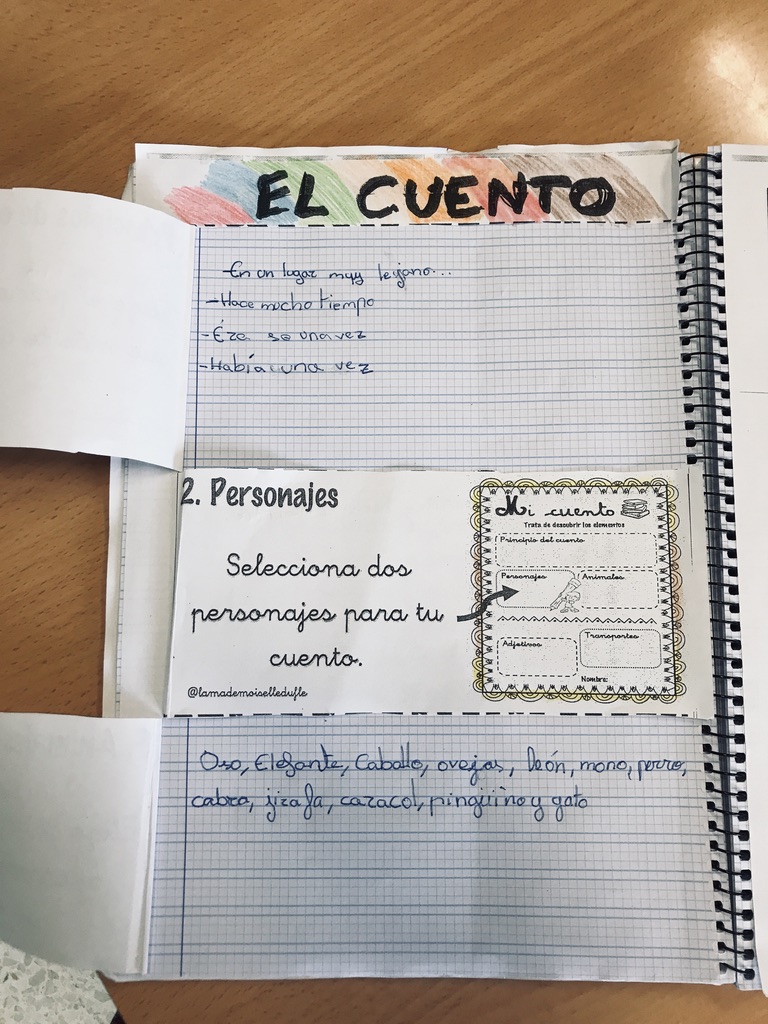 EL CUENTO
-En un lugar muy lejano...
-Hace mucho tiempo
-Érase una vez
-Había una vez
2. Personajes
Selecciona dos
personajes para tu
cuento.
@lamademoiselledufle
Mi cuento
Trata de descubrir los elementos
Principio del cuento
Personajes
Animales
Adjetivos
Transportes
Nombre:
Oso, Elefante, Caballo, ovejas, león, mono, perro,
cabra, jirafa, caracol, pingüino y gato